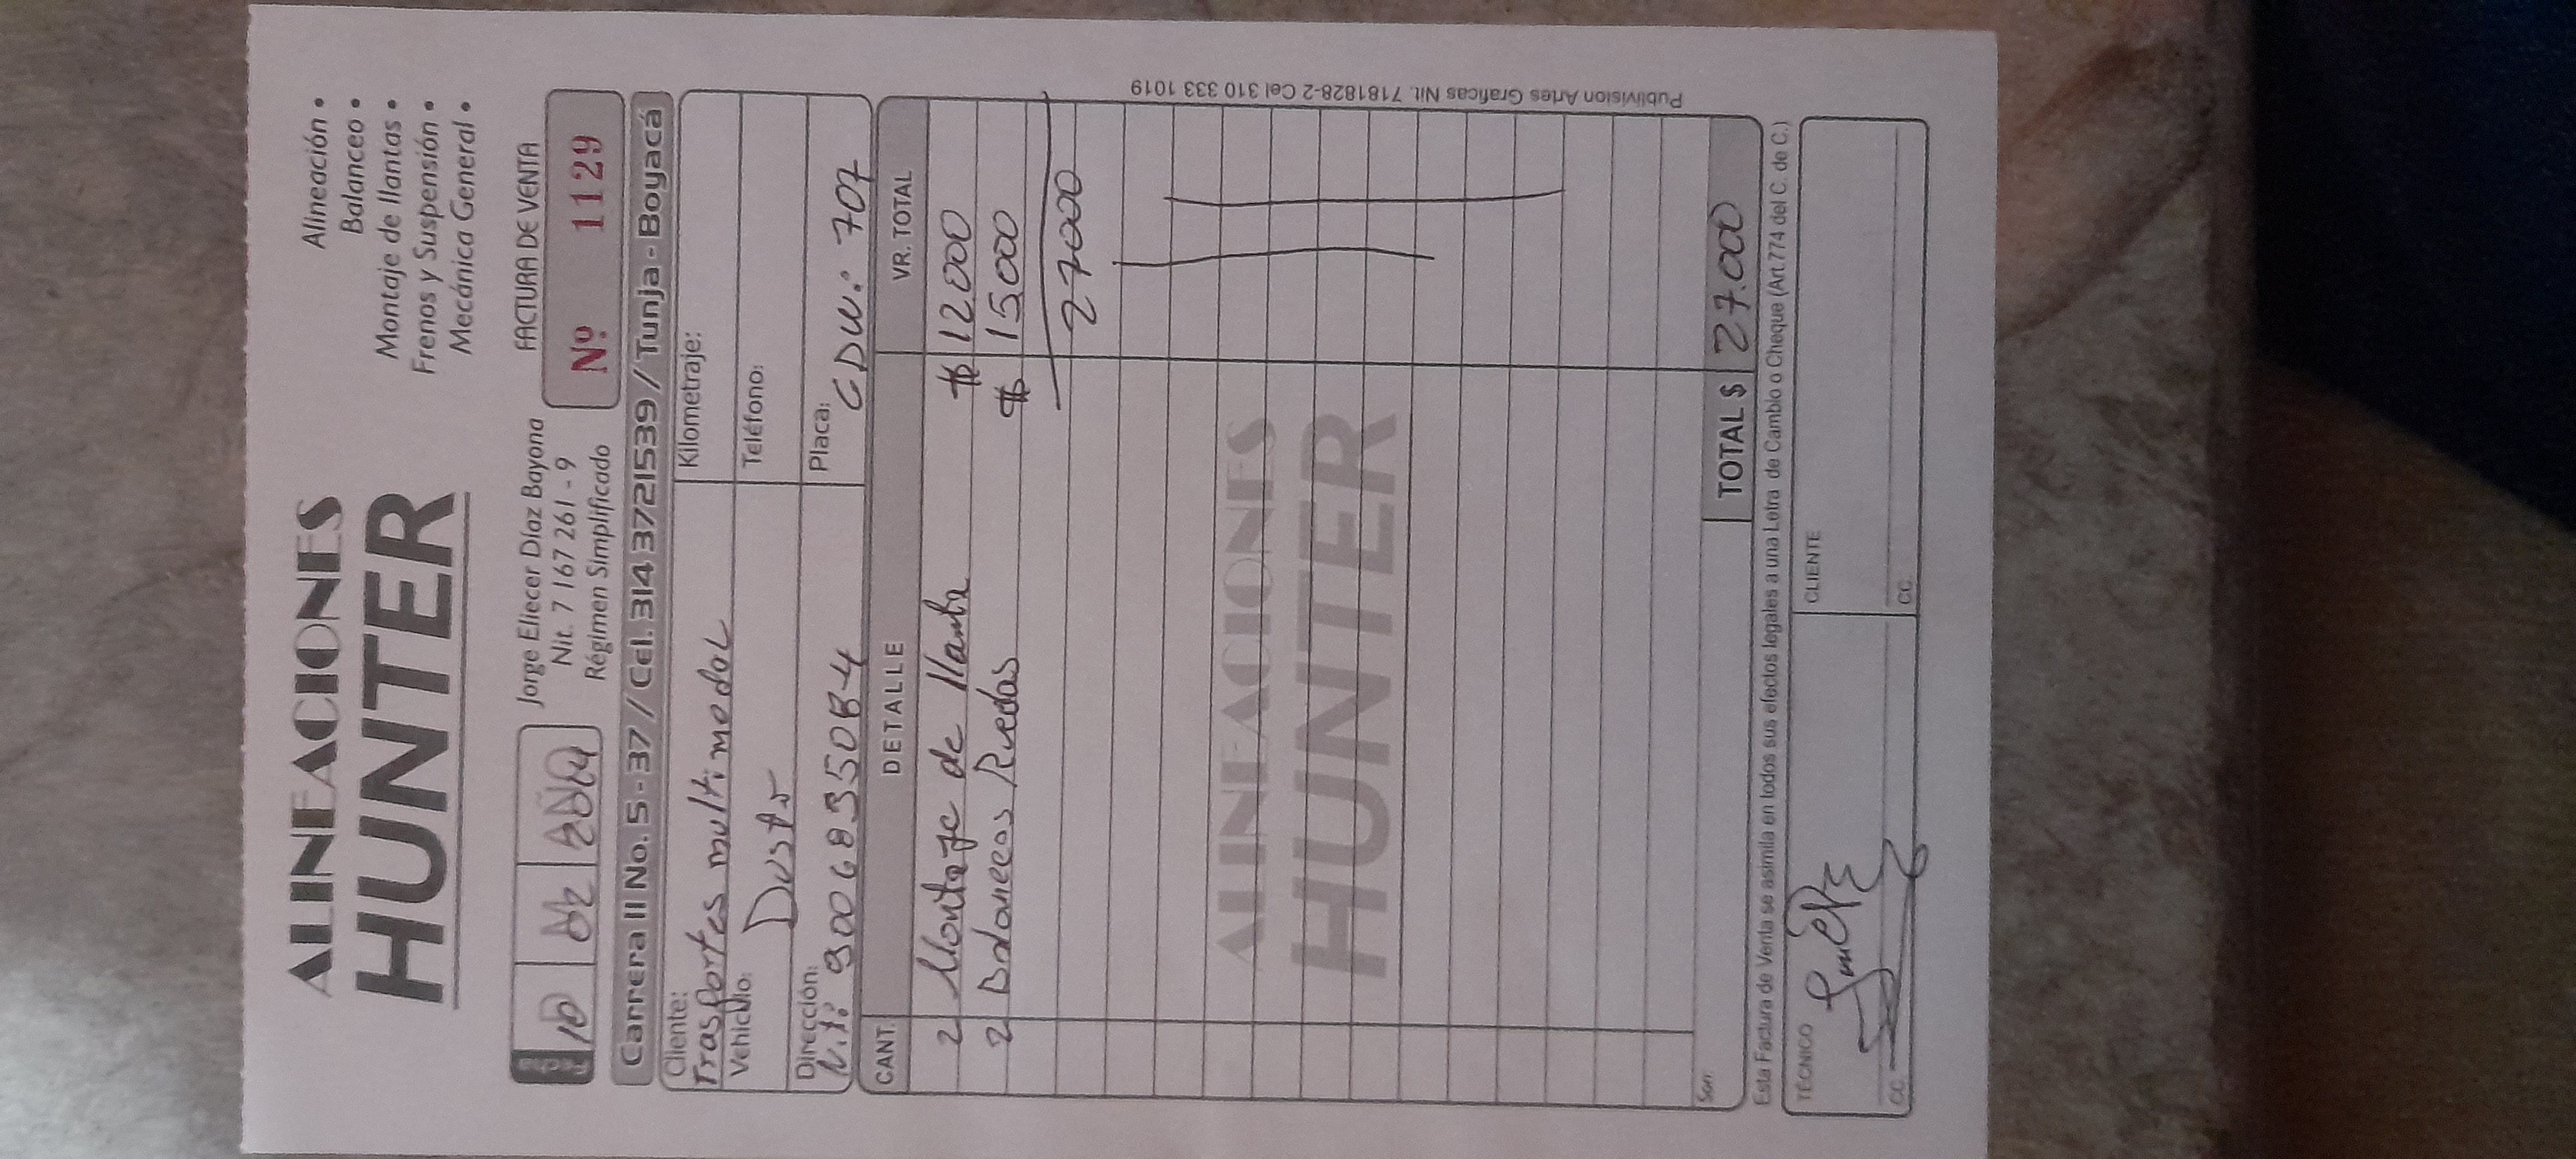 ALINEACIONES
HUNTER
Alineación •
Balanceo •
Montaje de llantas •
Frenos y Suspensión •
Mecánica General •
Fecha
10 02 2024
Jorge Eliecer Díaz Bayona
Nit. 7 167 261 - 9
Régimen Simplificado
FACTURA DE VENTA
Nº 1129
Carrera 11 No. 5 - 37 / Cel. 314 3721539 / Tunja - Boyacá
Cliente:
Trasportes multimodal
Kilometraje:
Vehículo:
Duster
Teléfono:
Dirección:
Nit: 9006835084
Placa:
CDW: 707
CANT. DETALLE VR. TOTAL
2 Montaje de llanta $ 12000
2 Balanceos Ruedas $ 15000
27000
ALINEACIONES
HUNTER
Son:
TOTAL $ 27.000
Esta Factura de Venta se asimila en todos sus efectos legales a una Letra de Cambio o Cheque (Art.774 del C. de C.)
TÉCNICO
CC.
CLIENTE
CC.
Publivision Artes Graficas Nit. 7181828-2 Cel 310 333 1019